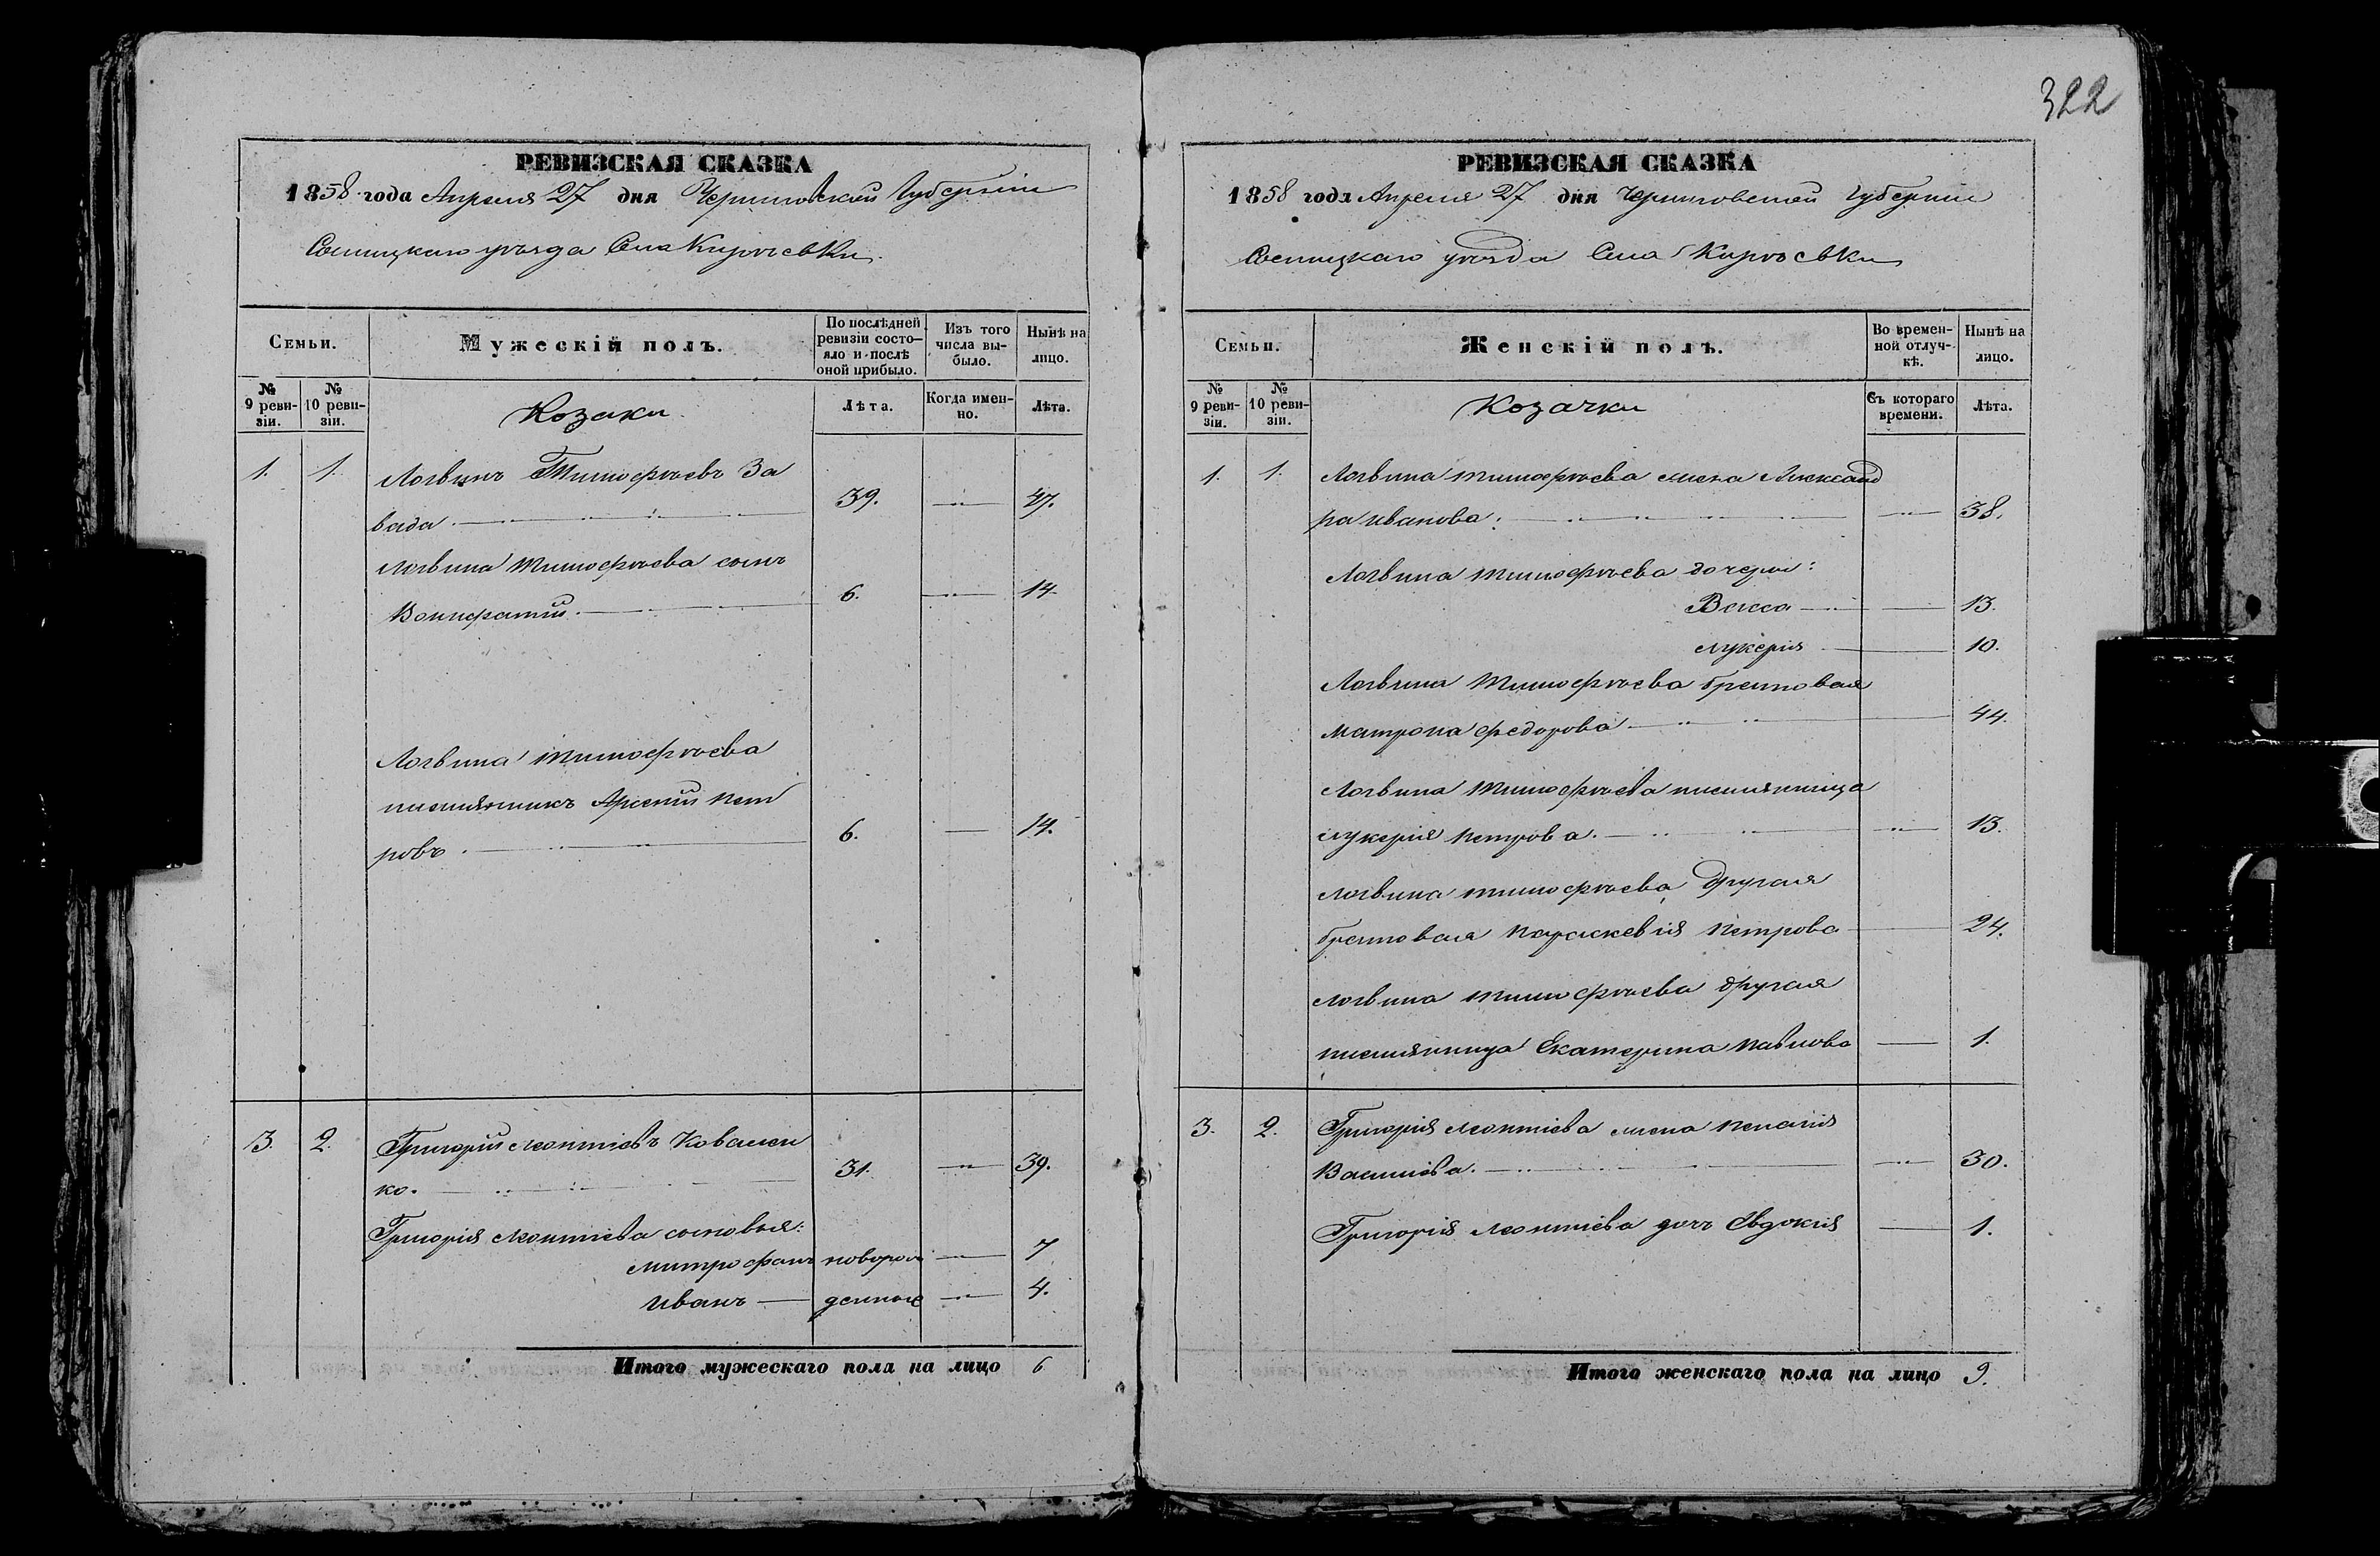 322
РЕВИЗСКАЯ СКАЗКА
1858 года Апреля 27 дня Черниговской Губернiи
Сосницкаго уѣзда Села Кирѣевки.
Семьи.
Мужескiй полъ.
По послѣдней ревизiи состояло и послѣ оной прибыло.
Изъ того числа выбыло.
Нынѣ на лицо.
№ 9 ревизiи.
№ 10 ревизiи.
Козаки
Лѣта.
Когда именно.
Лѣта.
1. 1. Логвинъ Тимофѣевъ За
вада. 39. 47.
Логвина Тимофѣева сынъ
Вонифатiй. 6. 14.
Логвина Тимофѣева
племянникъ Арсенiй Пет
ровъ. 6. 14.
3. 2. Григорiй Леонтiевъ Ковален
ко. 31. 39.
Григорiя Леонтiева сыновья:
Митрофанъ новорож 7
Иванъ денные 4.
Итого мужескаго пола на лицо 6
РЕВИЗСКАЯ СКАЗКА
1858 года Апреля 27 дня Черниговской Губернiи
Сосницкаго уѣзда Села Кирѣевки
Семьи.
Женскiй полъ.
Во временной отлучкѣ.
Нынѣ на лицо.
№ 9 ревизiи.
№ 10 ревизiи.
Козачки
Съ котораго времени.
Лѣта.
1. 1. Логвина Тимофѣева жена Александ
ра Иванова: 38.
Логвина Тимофѣева дочери:
Васса 13.
Лукерiя 10.
Логвина Тимофѣева братовая
Матрона Федорова 44.
Логвина Тимофѣева племянница
Лукерiя Петрова. 13.
Логвина Тимофѣева другая
братовая Параскевiя Петрова 24.
Логвина Тимофѣева другая
племянница Екатерина Павлова 1.
3. 2. Григорiя Леонтiева жена Пелагiя
Василiева. 30.
Григорiя Леонтiева дочь Евдокiя 1.
Итого женскаго пола на лицо 9.